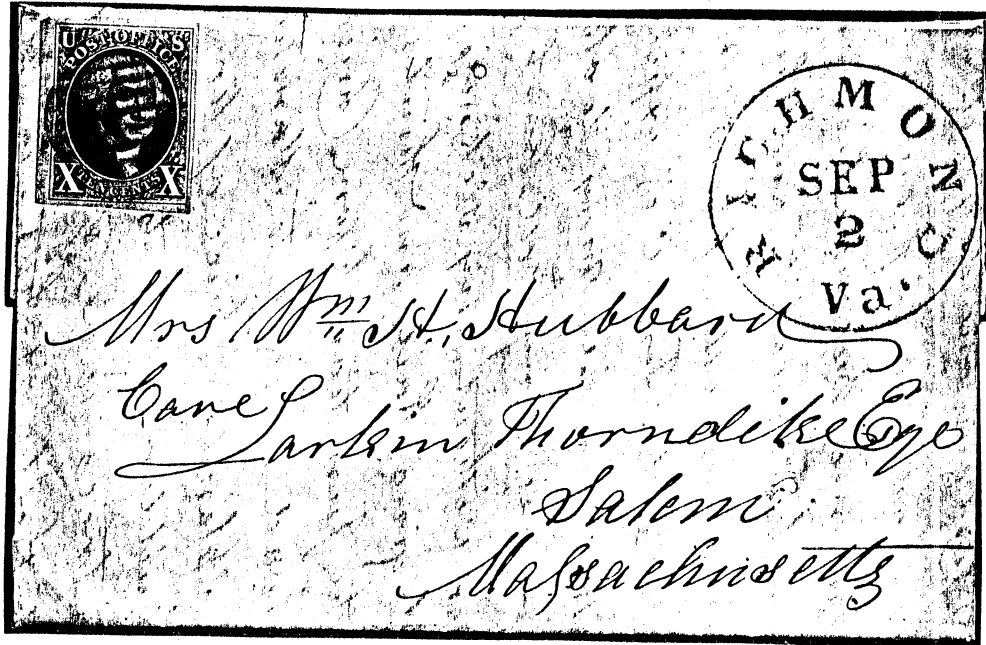 U S
POST OFFICE
X X
RICHMOND
SEP
2
Va.
Mrs Wm H. Hubbard
Care
Larkin Thorndike Esqe
Salem
Massachusetts